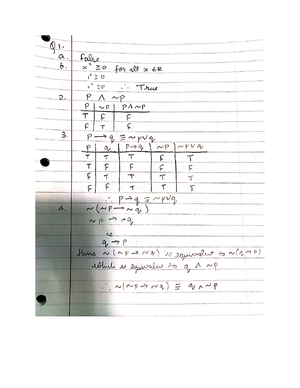 Q1.
a. False
b. x² ≥ 0 for all x ∈ R
x² ≥ 0
x² ≥ 0 ∴ True
2. P ∧ ~P
P ~P P∧~P
T F F
F T F
3. P → q ≡ ~P∨q
P q P→q ~P ~P∨q
T T T F T
T F F F F
F T T T T
F F T T T
∴ P→q ≡ ~P∨q
4. ~(~P → ~q)
~P → ~q
is
q → P
thus ~(~P → ~q) is equivalent to ~(q→P)
which is equivalent to q ∧ ~P
∴ ~(~P → ~q) ≡ q ∧ ~P